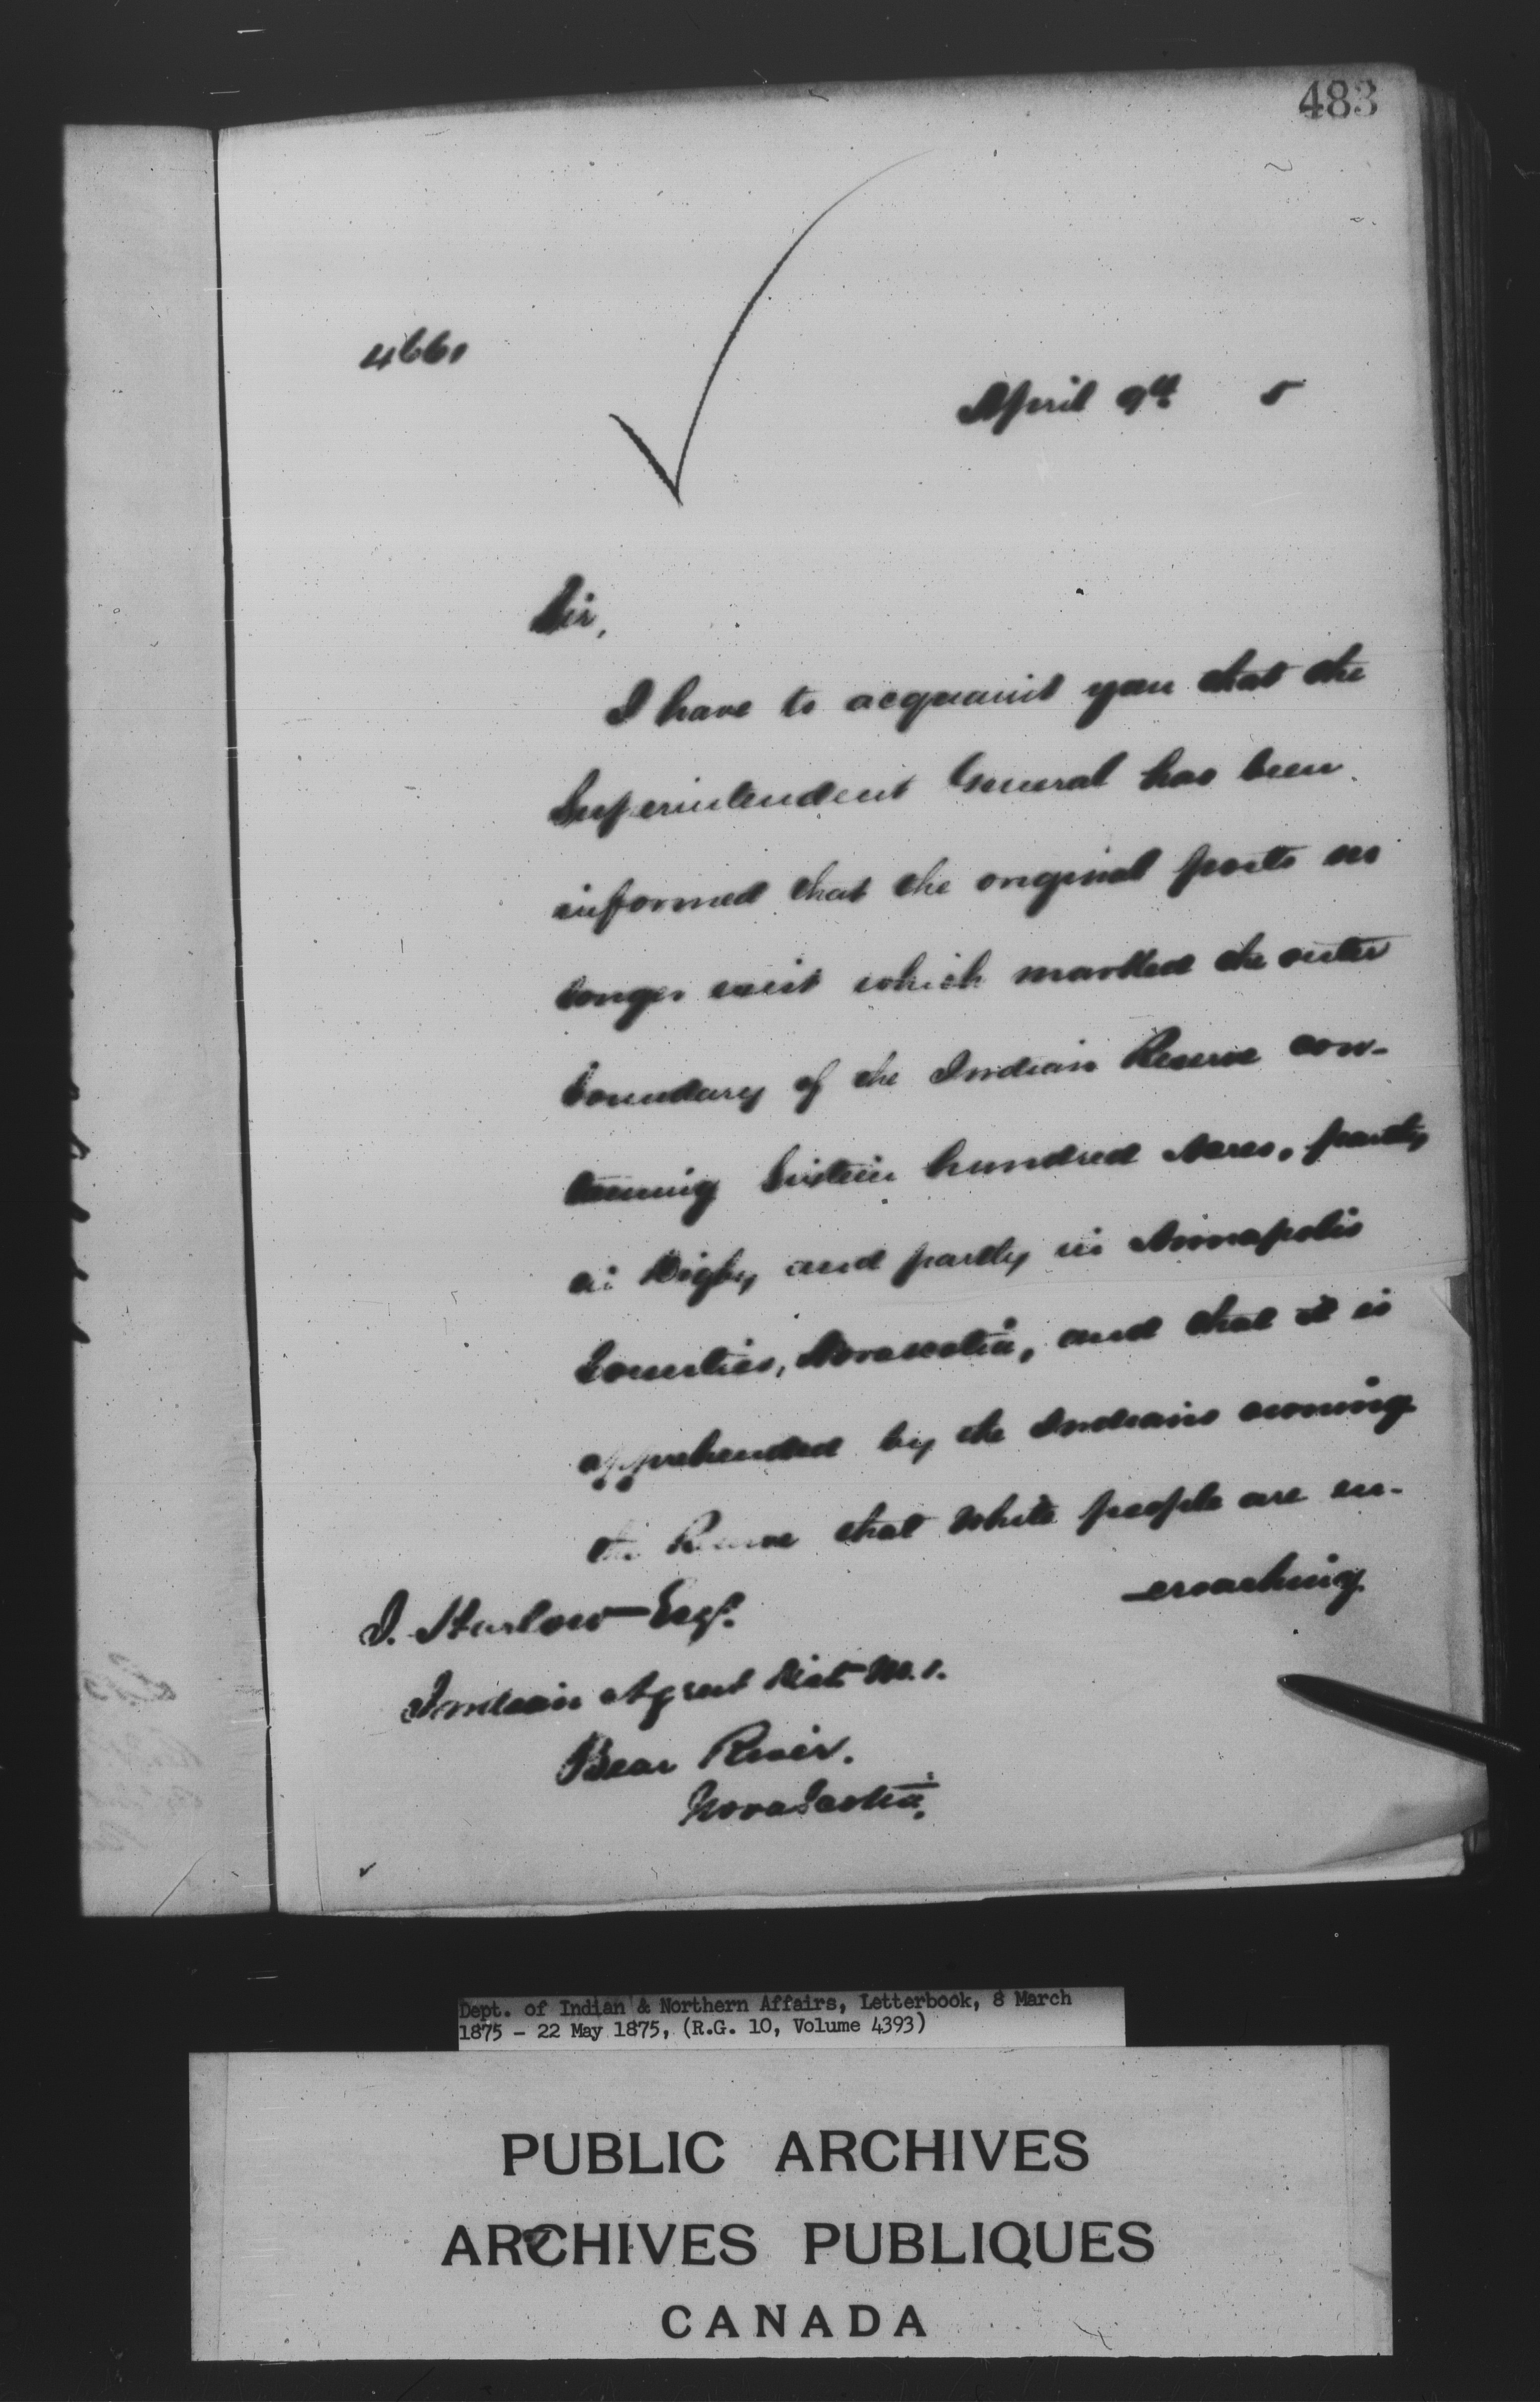 483
4660
April 9th 5
Sir,
I have to acquaint you that the
Superintendent General has been
informed that the original posts no
longer exist which marked the outer
boundary of the Indian Reserve con-
taining Sixteen hundred Acres, partly
in Digby and partly in Annapolis
Counties, Novascotia, and that it is
apprehended by the Indians owning
the Reserve that White people are en-
-croaching
J. Harlow Esqr.
Indian Agent Dist No. 1.
Bear River.
Nova Scotia.
Dept. of Indian & Northern Affairs, Letterbook, 8 March
1875 - 22 May 1875, (R.G. 10, Volume 4393)
PUBLIC ARCHIVES
ARCHIVES PUBLIQUES
CANADA